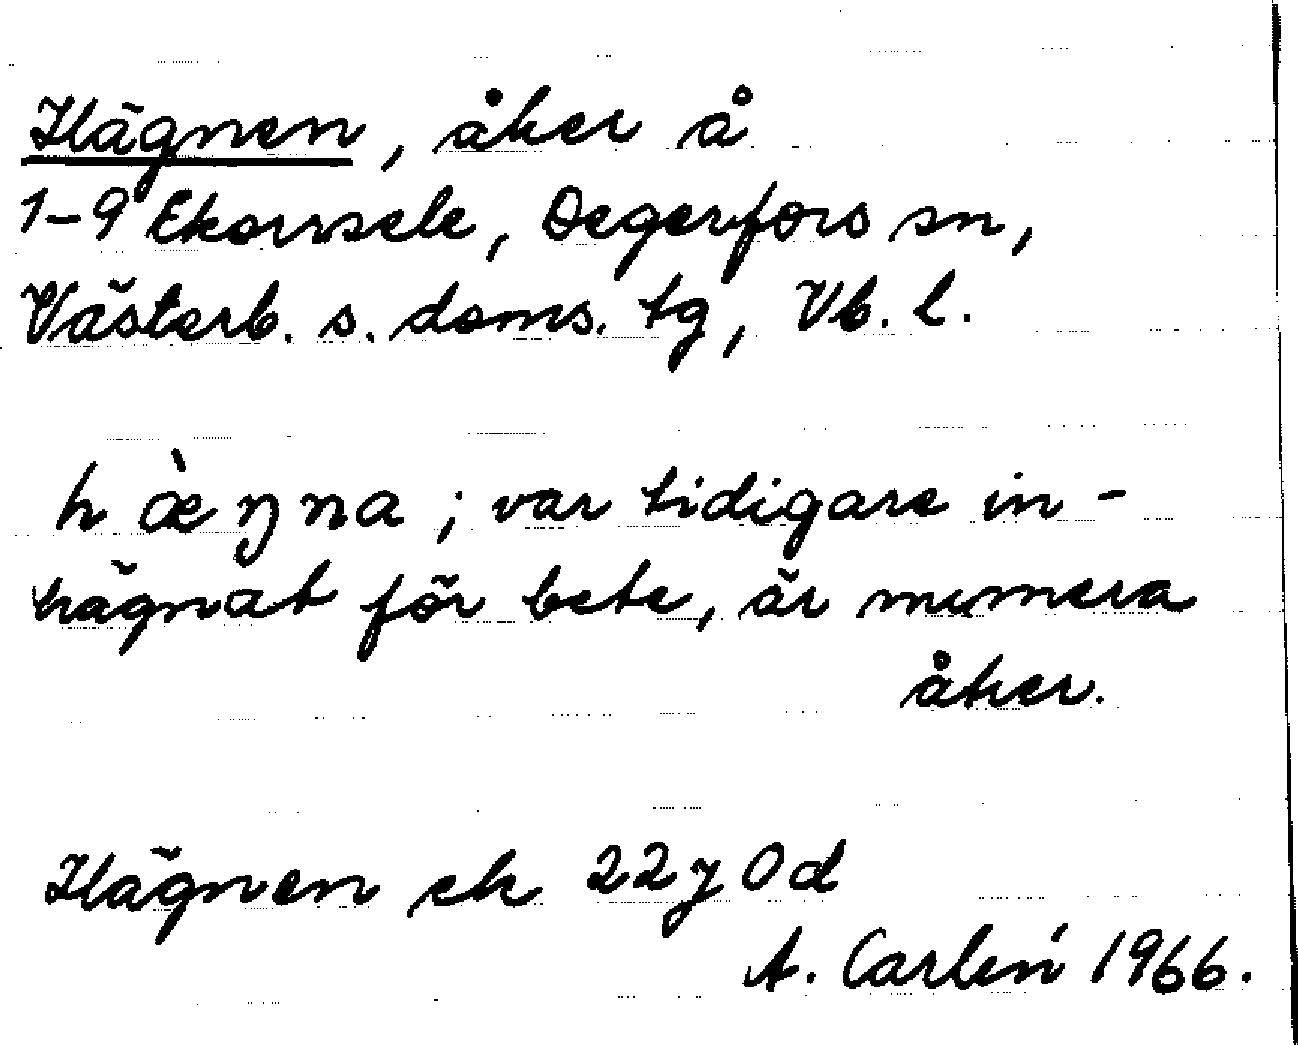 Hägnen, åker å
1-9 Ekorrsele, Degerfors sn,
Västerb. s. doms. tg, Vb. l.
h æ̀ŋna; var tidigare in-
hägnat för bete, är numera
åker.
Hägnen ek 22 y 0 d
A. Carlén 1966.